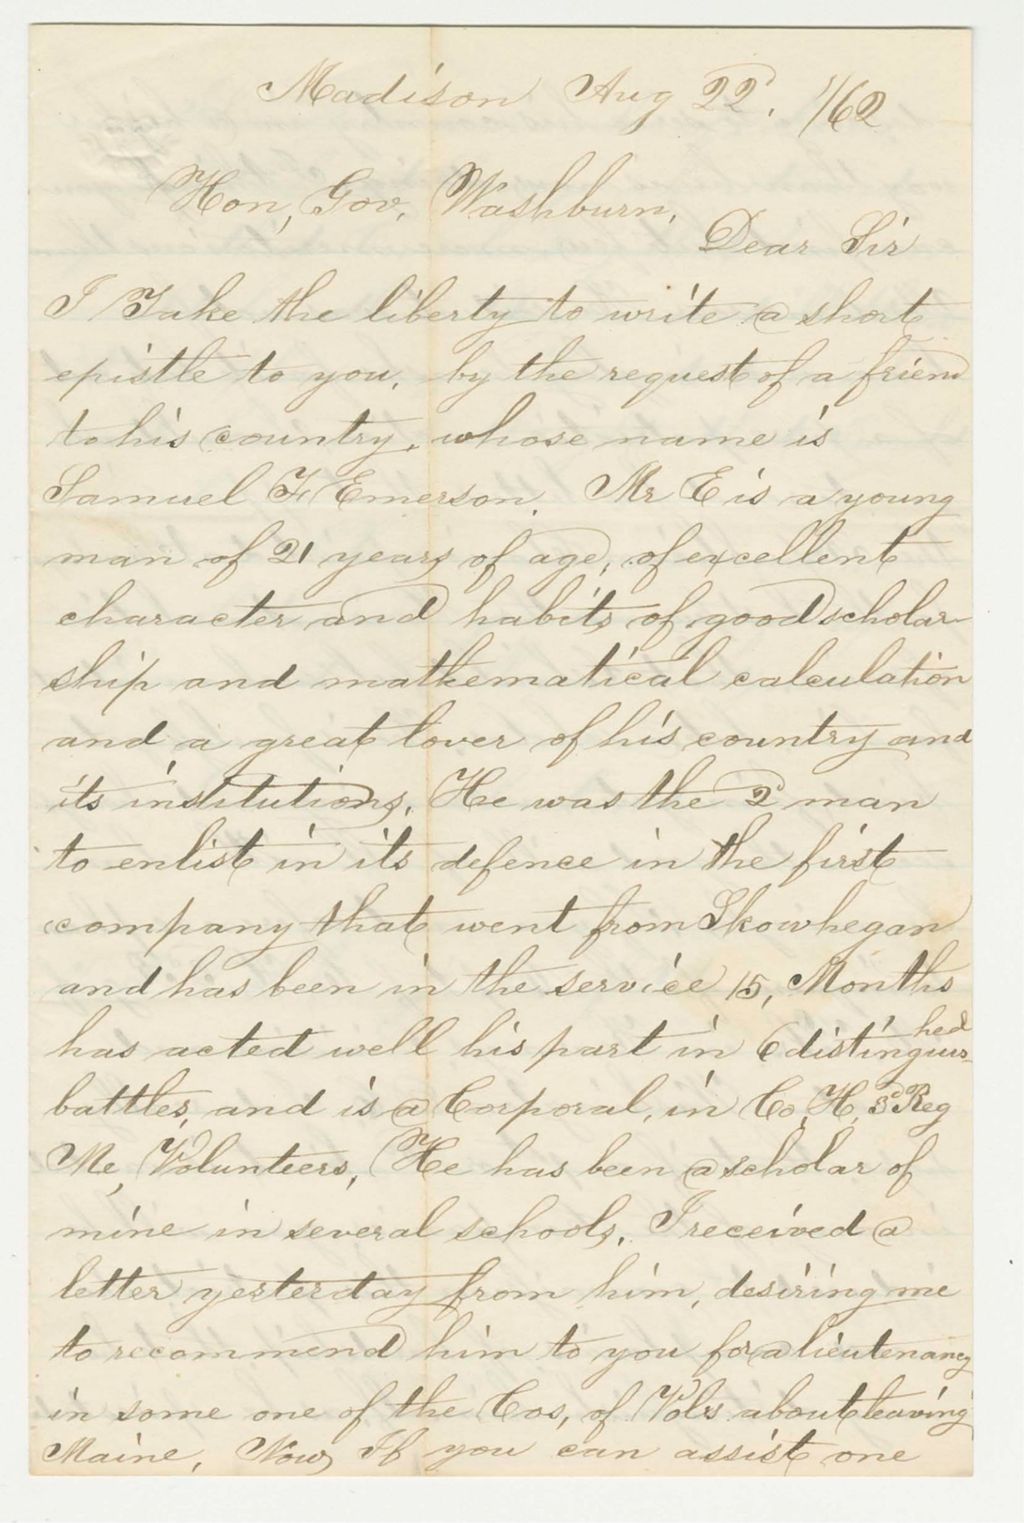 Madison Aug 22. 1/62
Hon, Gov, Washburn,
Dear Sir
I Take the liberty to write a short
epistle to you, by the request of a friend
to his country, whose name is
Samuel F. Emerson. Mr E is a young
man of 21 years of age, of excellent
character and habits of good scholar-
ship and mathematical calculation
and a great lover of his country and
its institutions. He was the 2d man
to enlist in its defence in the first
company that went from Skowhegan
and has been in the service 15, Months
has acted well his part in 6 distinguis-
hed
battles, and is a Corporal, in Co, H, 3d Reg
Me, Volunteers, He has been a scholar of
mine in several schools. I received a
letter yesterday from him, desiring me
to recommend him to you for a lieutenancy
in some one of the Cos, of Vols about leaving
Maine, Now, If you can assist one